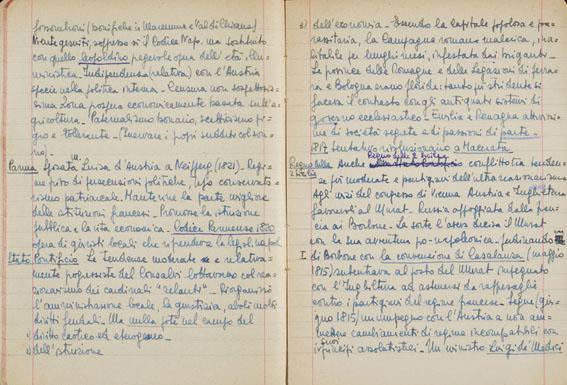 Fossombroni (bonifiche in Maremma e Val di Chiana)
vien te gesuiti, soppesso sì il Codice Nap. ma sostituito
con quello leopoldino pregevole opera dell'età illu-
ministica. Indipendenza (relativa) con l'Austria
specie nella politica interna. Censura non soffocan-
sima. Zona poverna economicamente basata sull'a-
gricoltura. Paternalismo bonario, scetticismo pi-
gro e tollerante.
no).
Parma sposata Luisa d'Austria a Neipperg (1821). Regi-
me privo di persecuzioni politiche, tipo conservato-
rismo patriarcale. Mantenne la parte migliore
delle istituzioni francesi. Promosse la istruzione
pubblica e la vita economica. Codice Parmense 1820
opera di giuristi locali che riprendeva la legisl. napol
Stato Pontificio Le tendenze moderate e relativa-
mente progressiste del Consalvi lottavano col rea-
zionarismo dei cardinali "zelanti". Riorganizzò
l'amministrazione locale, la giustizia, abolì molti
diritti feudali. Ma nulla fece nel campo del
1) diritto
2) dell'istruzione
3) dell'economia. Essendo la capitale popolosa e pa-
rassitaria, la Campagna romana malarica, ina-
bitabile per lunghi mesi, infestata dai briganti.
Le province delle Romagne e delle Legazioni di Ferra-
ra e Bologna erano floride: tanto più stridente si
faceva il contrasto con gli antiquati sistemi di
governo ecclesiastico. Emilia e Romagna attivissi-
me di società segrete e di passioni di parte.
1817 tentativo rivoluzionario a Macerata
Regno delle 2 Sicilie
Regno delle Anche conflitto tra tenden-
2 Sicilie ze più moderate e partigiani dell'ultra reazionarismo
Agli inizi del congresso di Vienna Austria e Inghilterra
favorevoli al Murat. Russia appoggiata dalla Fran-
cia ai Borbone. La sorte stessa decise il Murat
con la sua avventura po-napoleonica. Ferdinando
I di Borbone con la convenzione di Casalanza (maggio
1815) subentrava al posto del Murat impegnato
con l'Inghilterra ad astenersi da rappresaglie
contro i partigiani del regime francese. (giu-
gno 1815) un impegno con l'Austria a non am-
mettere cambiamenti di regime incompatibili con
i suoi principi assolutistici. Un ministro Luigi de' Medici